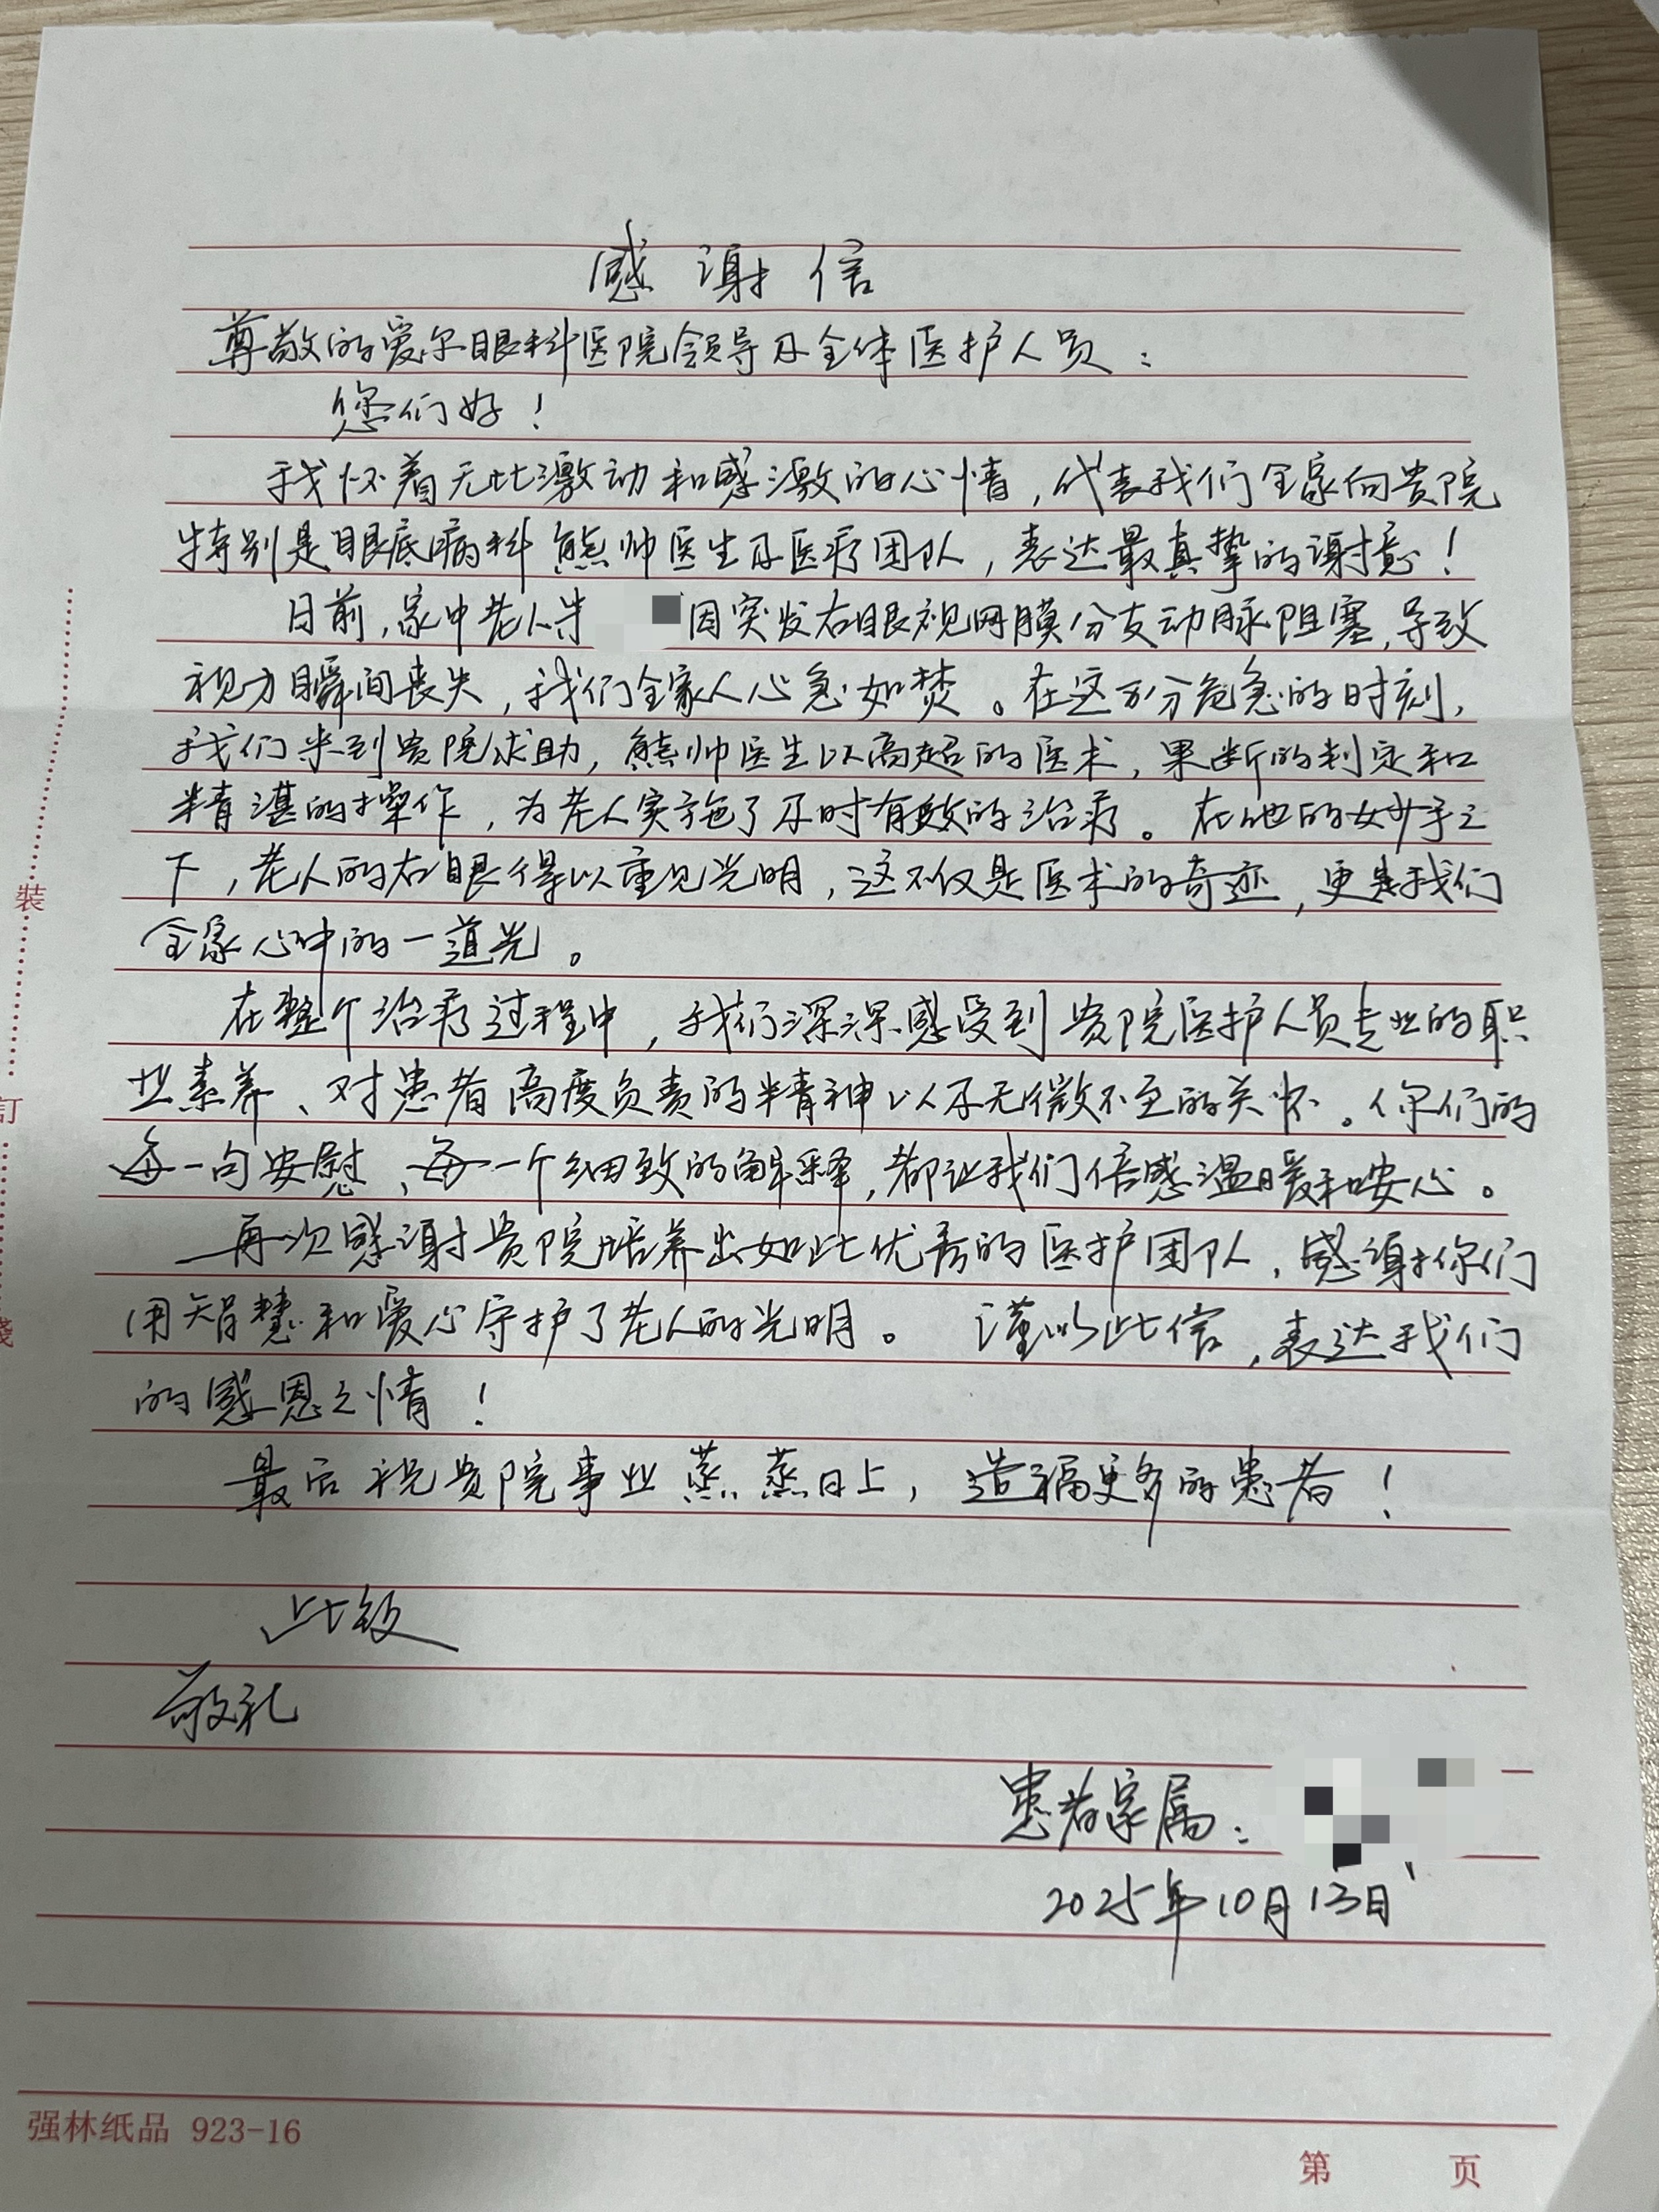 感谢信
尊敬的爱尔眼科医院领导及全体医护人员：
您们好！
我怀着无比激动和感激的心情，代表我们全家向贵院
特别是眼底病科熊帅医生及医疗团队，表达最真挚的谢意！
日前，家中老人朱 因突发右眼视网膜分支动脉阻塞，导致
视力瞬间丧失，我们全家人心急如焚。在这万分危急的时刻，
我们来到贵院求助，熊帅医生以高超的医术，果断的判定和
精湛的操作，为老人实施了及时有效的治疗。在他的妙手之
下，老人的右眼得以重见光明，这不仅是医术的奇迹，更是我们
全家心中的一道光。
在整个治疗过程中，我们深深感受到贵院医护人员专业的职
业素养、对患者高度负责的精神以及无微不至的关怀。你们的
每一句安慰、每一个细致的解释，都让我们倍感温暖和安心。
再次感谢贵院培养出如此优秀的医护团队，感谢你们
用智慧和爱心守护了老人的光明。 谨以此信，表达我们
的感恩之情！
最后祝贵院事业蒸蒸日上，造福更多的患者！
此致
敬礼
患者家属：
2025年10月13日
裝
訂
綫
强林纸品 923-16
第 页